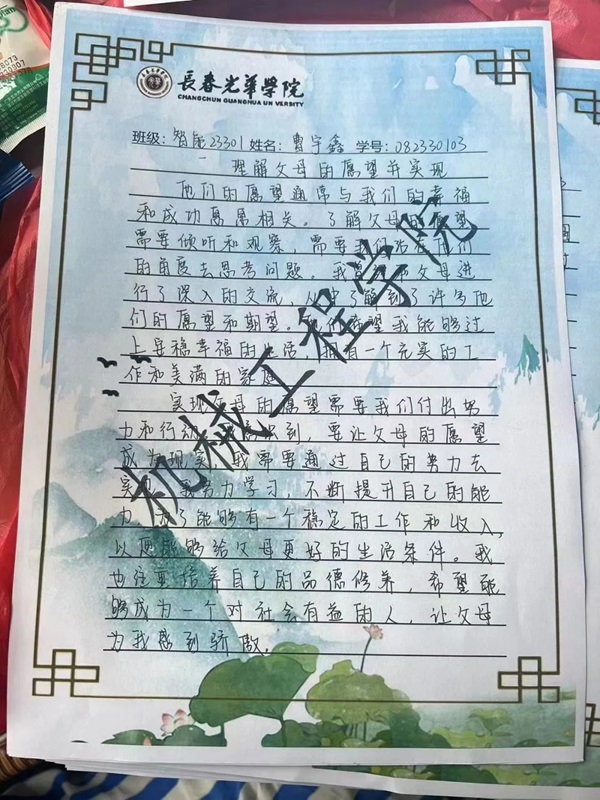 長春光华學院
CHANGCHUN GUANGHUA UNIVERSITY
班级：智能23301 姓名：曹宇鑫 学号：082330103
理解父母的愿望并实现
他们的愿望通常与我们的幸福
和成功息息相关。了解父母的愿望
需要倾听和观察，需要我们站在他们
的角度去思考问题。我 父母进
行了深入的交流，从中了解到了许多他
们的愿望和期望。 希望我能够过
上安稳幸福的生活，拥有一个充实的工
作和美满的家庭
实现父母的愿望需要我们付出努
力和行动 到，要让父母的愿望
成为现实，我需要通过自己的努力去
实现 我努力学习，不断提升自己的能
力 为了能够有一个稳定的工作和收入，
以便能够给父母更好的生活条件。我
也注重培养自己的品德修养，希望能
够成为一个对社会有益的人，让父母
为我感到骄傲。
机械工程学院